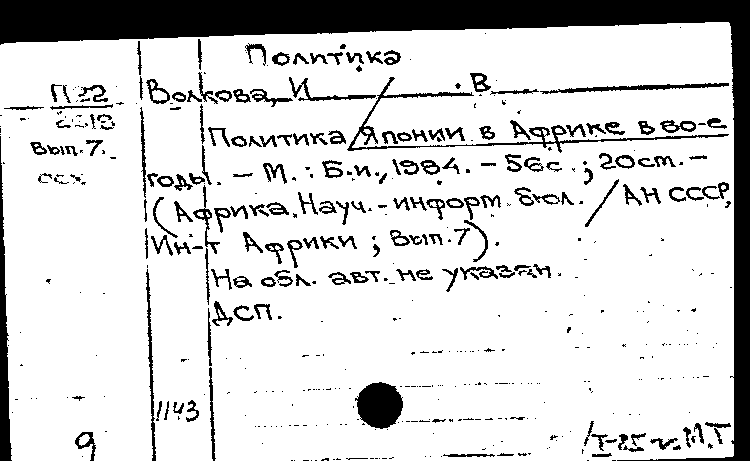 Политика
П22 Волкова, И. В
Политика / Японии в Африке в 80-е
Вып. 7.
годы. - М. : Б.и., 1984. - 56с. ; 20см. -
(Африка. Науч.-информ. бюл. / АН СССР,
Ин-т Африки ; Вып. 7).
На обл. авт. не указан.
ДСП.
1143
9